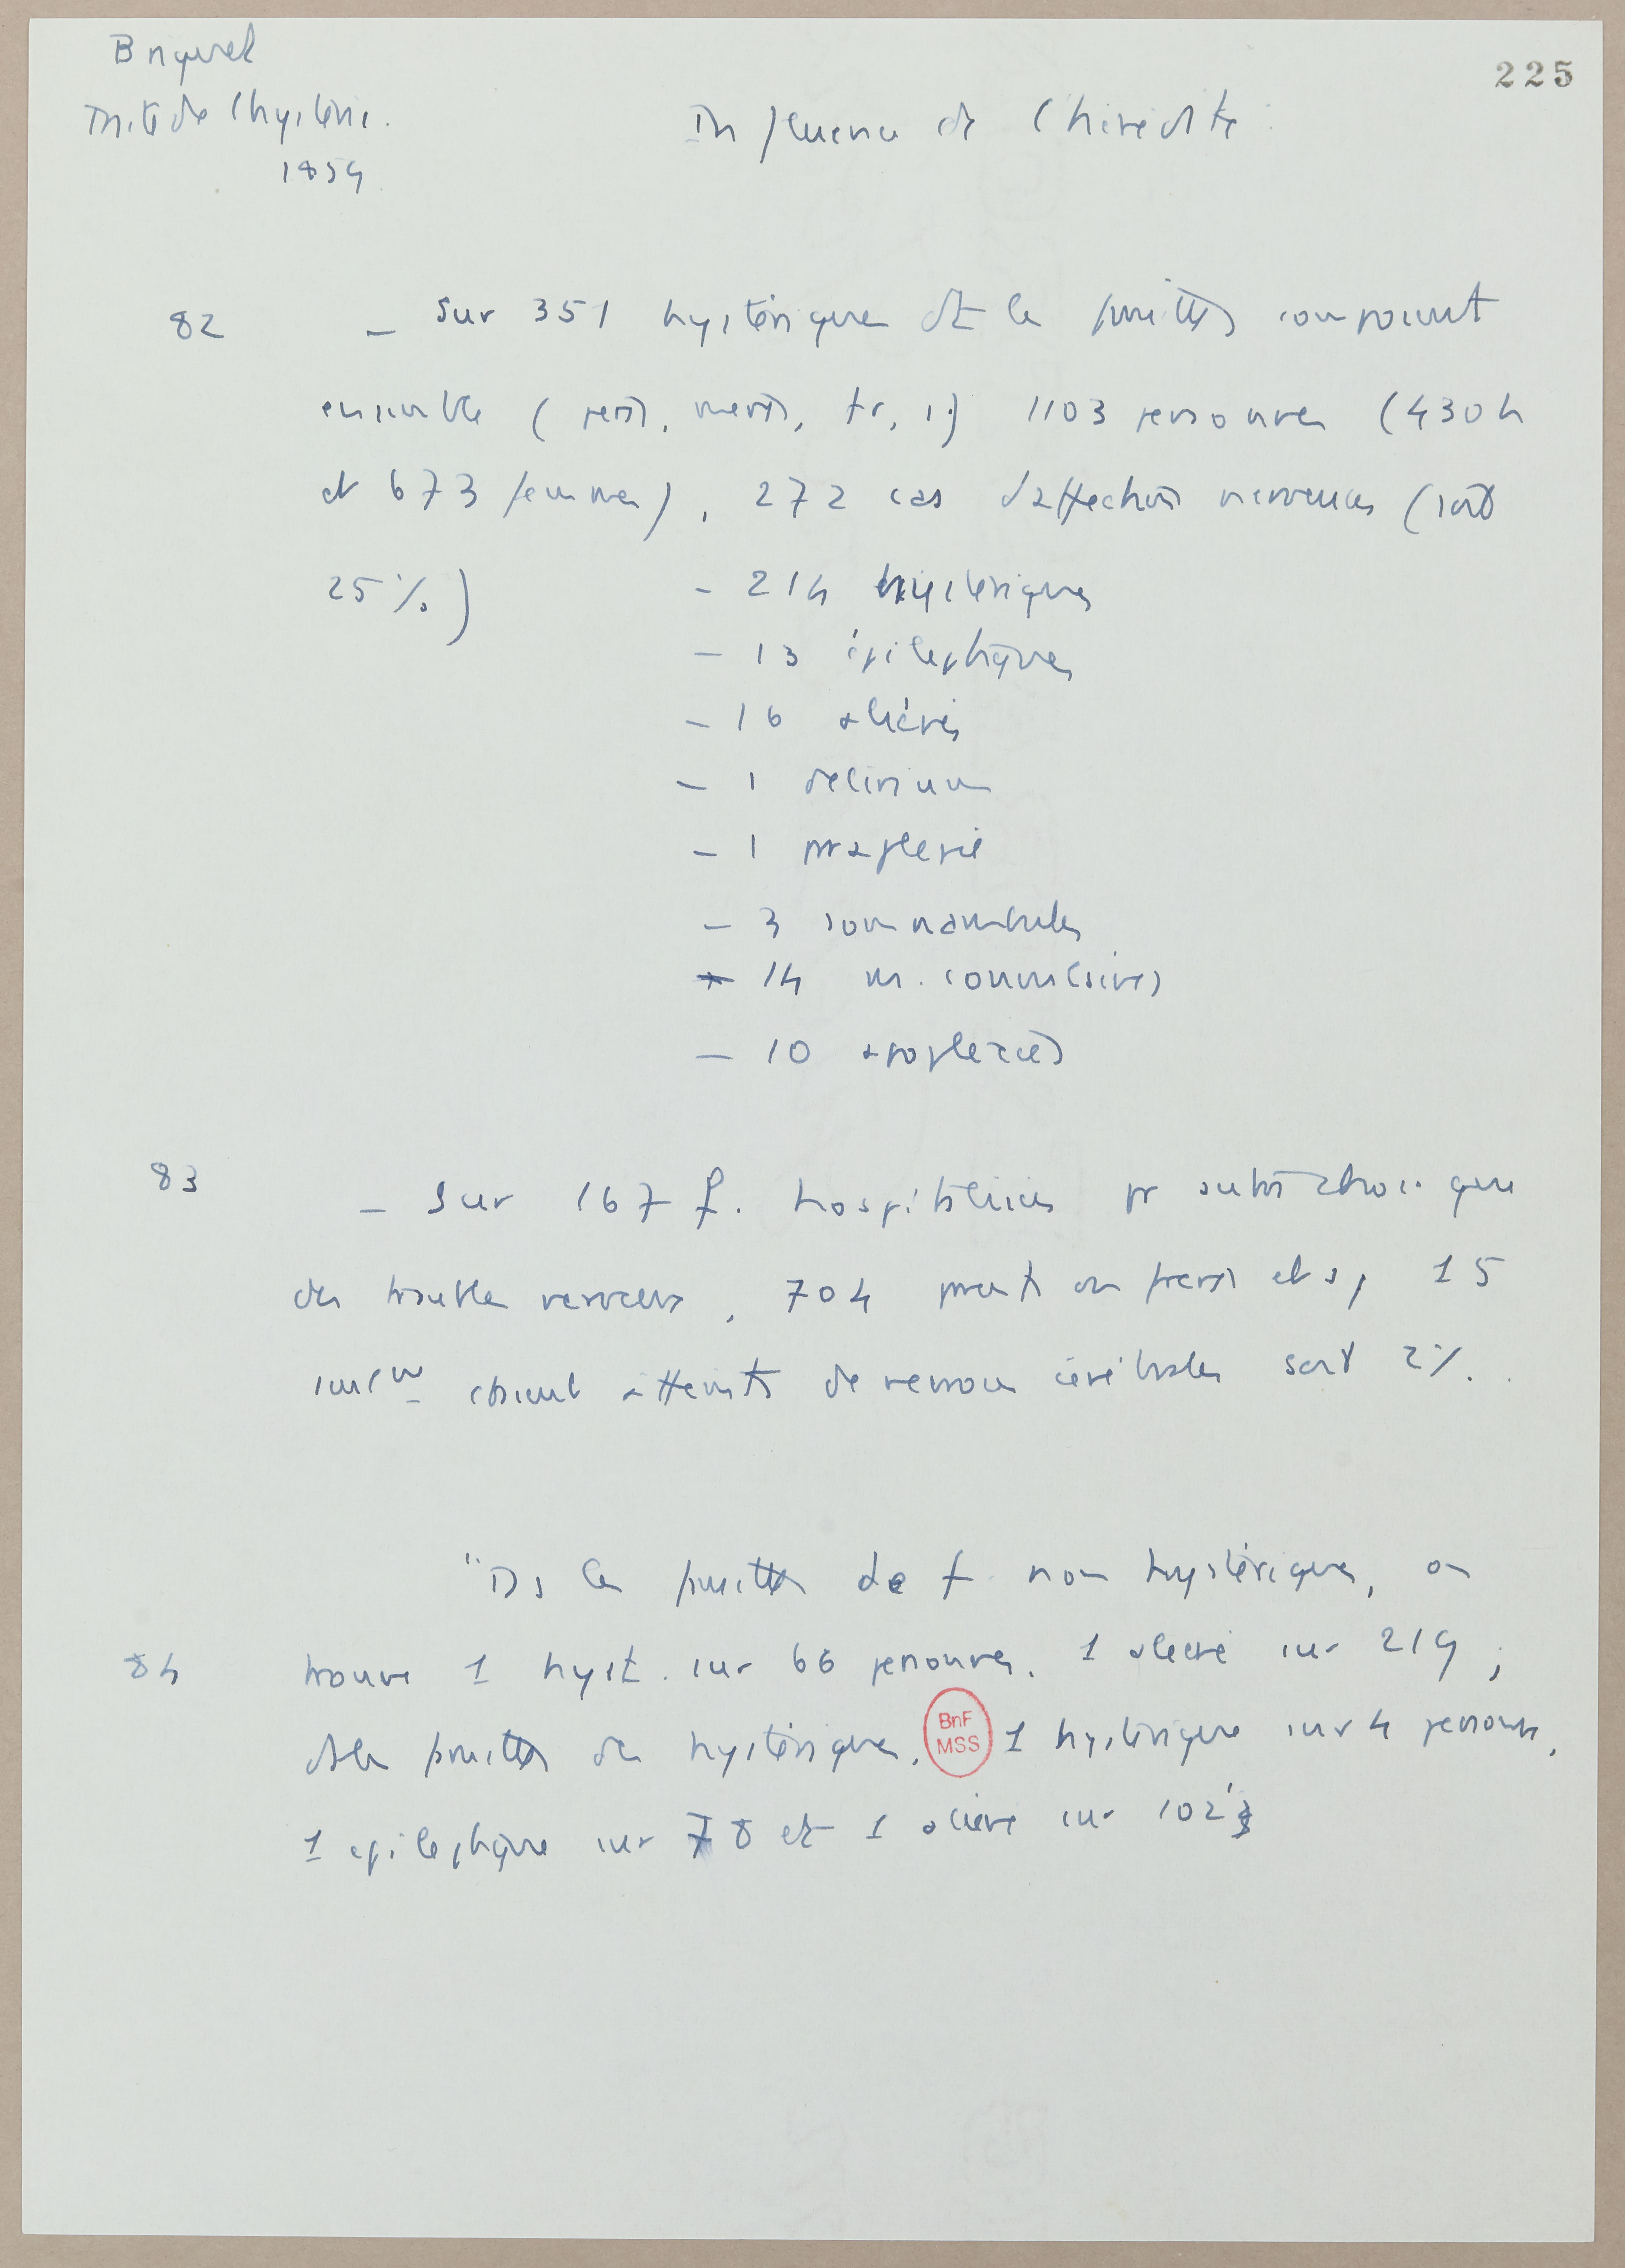 Briquet
225
Traité de l'hystérie.
Influence de l'hérédité
1859
82 – Sur 351 hystériques dt les familles comprenaient
ensemble (pères, mères, fr, s.) 1103 personnes (430 h
et 673 femmes), 272 cas d'affections nerveuses (soit
25 %) – 214 hystériques
– 13 épileptiques
– 16 aliénés
– 1 delirium
– 1 paraplégie
– 3 somnambules
– 14 m. convulsives
– 10 apoplexies
83 – Sur 167 f. hospitalisées pr autre chose que
des troubles nerveux, 704 parents ou frères et s, 15
seulmt étaient atteints de cérébrales soit 2%.
"Ds les familles de f non hystériques, on
84 trouve 1 hyst. sur 66 personnes. 1 aliéné sur 219 ;
ds les familles des hystériques, 1 hystérique sur 4 personnes,
BnF
MSS
1 épileptique sur 78 et 1 aliéné sur 102"